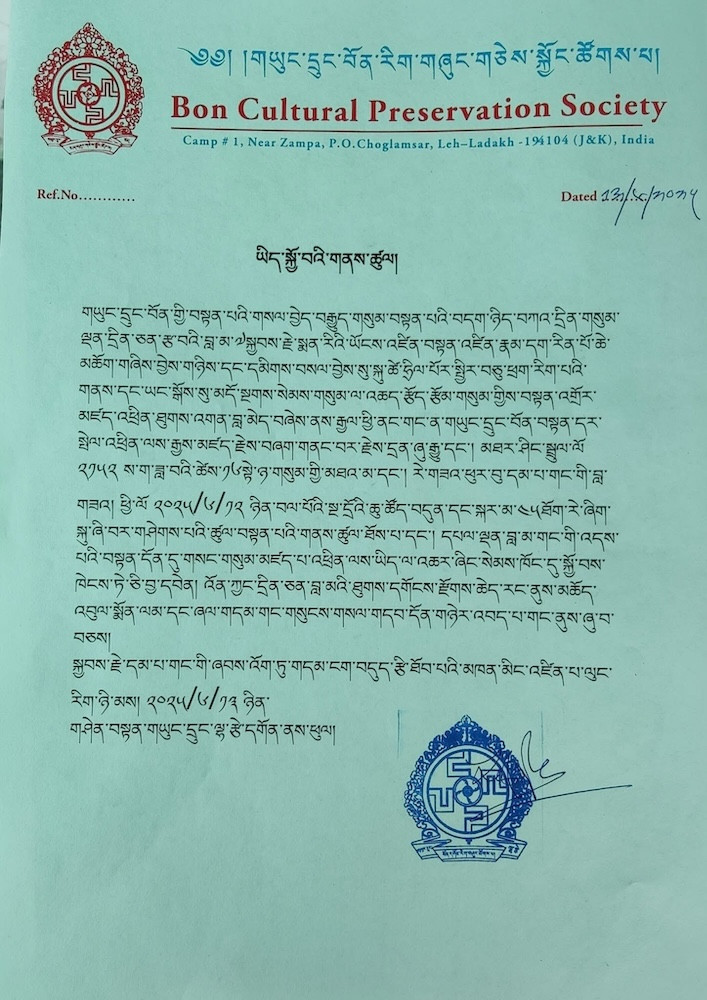 ༄༅། །གཡུང་དྲུང་བོན་རིག་གཞུང་གཅེས་སྐྱོང་ཚོགས་པ།
Bon Cultural Preservation Society
Camp # 1, Near Zampa, P.O.Choglamsar, Leh–Ladakh -194104 (J&K), India
Ref.No............
Dated ༡༣/༦/༢༠༢༥
ཡིད་སྐྱོ་བའི་གནས་ཚུལ།
གཡུང་དྲུང་བོན་གྱི་བསྟན་པའི་གསལ་བྱེད་བརྒྱུད་གསུམ་བསྟན་པའི་བདག་ཉིད་བཀའ་དྲིན་གསུམ་
ལྡན་དྲིན་ཅན་རྩ་བའི་བླ་མ་༧སྐྱབས་རྗེ་སྨན་རིའི་ཡོངས་འཛིན་བསྟན་འཛིན་རྣམ་དག་རིན་པོ་ཆེ་
མཆོག་གཞིས་བྱེས་གཉིས་དང་དམིགས་བསལ་བྱེས་སུ་སྐུ་ཚེ་ཧྲིལ་པོར་སྤྱིར་བཅུ་ཕྲག་རིག་པའི་
གནས་དང་ཡང་སྒོས་སུ་མདོ་སྔགས་སེམས་གསུམ་ལ་འཆད་རྩོད་རྩོམ་གསུམ་གྱིས་བསྟན་འགྲོར་
མཛད་འཕྲིན་ཐུགས་འགན་བླ་མེད་བཞེས་ནས་རྒྱལ་ཕྱི་ནང་གང་ན་གཡུང་དྲུང་བོན་བསྟན་དར་
སྤེལ་འཕྲིན་ལས་རྒྱས་མཛད་རྗེས་བཞག་གནང་བར་རྗེས་དྲན་ཞུ་རྒྱུ་དང་། མཐར་ཤིང་སྦྲུལ་ལོ་
༢༡༥༢ ས་ག་ཟླ་བའི་ཚེས་༡༦སྟེ་ཉ་གསུམ་གྱི་མཐའ་མ་དང་། རེ་གཟའ་ཕུར་བུ་དམ་པ་གང་གི་བླ་
གཟའ། ཕྱི་ལོ་ ༢༠༢༥/༦/༡༢ ཉིན་བལ་པོའི་སྔ་དྲོའི་ཆུ་ཚོད་བདུན་དང་སྐར་མ་༤༥ཐོག་རེ་ཞིག་
སྐུ་ཞི་བར་གཤེགས་པའི་ཚུལ་བསྟན་པའི་གནས་ཚུལ་ཐོས་པ་དང་། དཔལ་ལྡན་བླ་མ་གང་གི་འདས་
པའི་བསྟན་དོན་དུ་གསང་གསུམ་མཛད་པ་འཕྲིན་ལས་ཡིད་ལ་འཆར་ཞིང་སེམས་ཁོང་དུ་སྐྱོ་བས་
ཁེངས་ཏེ་ཅི་བྱ་དབེན། འོན་ཀྱང་དྲིན་ཅན་བླ་མའི་ཐུགས་དགོངས་རྫོགས་ཆེད་རང་ནུས་མཆོད་
འབུལ་སྨོན་ལམ་དང་ཞལ་གདམ་གང་གསུངས་གསལ་གདབ་དོན་གཉེར་འབད་པ་གང་ནུས་ཞུ་བ་
བཅས།
སྐྱབས་རྗེ་དམ་པ་གང་གི་ཞབས་འོག་ཏུ་གདམ་ངག་བདུད་རྩི་ཐོབ་པའི་མཁན་མིང་འཛིན་པ་ལུང་
རིག་ཉི་མས། ༢༠༢༥/༦/༡༣ ཉིན་
གཤེན་བསྟན་གཡུང་དྲུང་ལྷ་རྩེ་དགོན་ནས་ཕུལ།